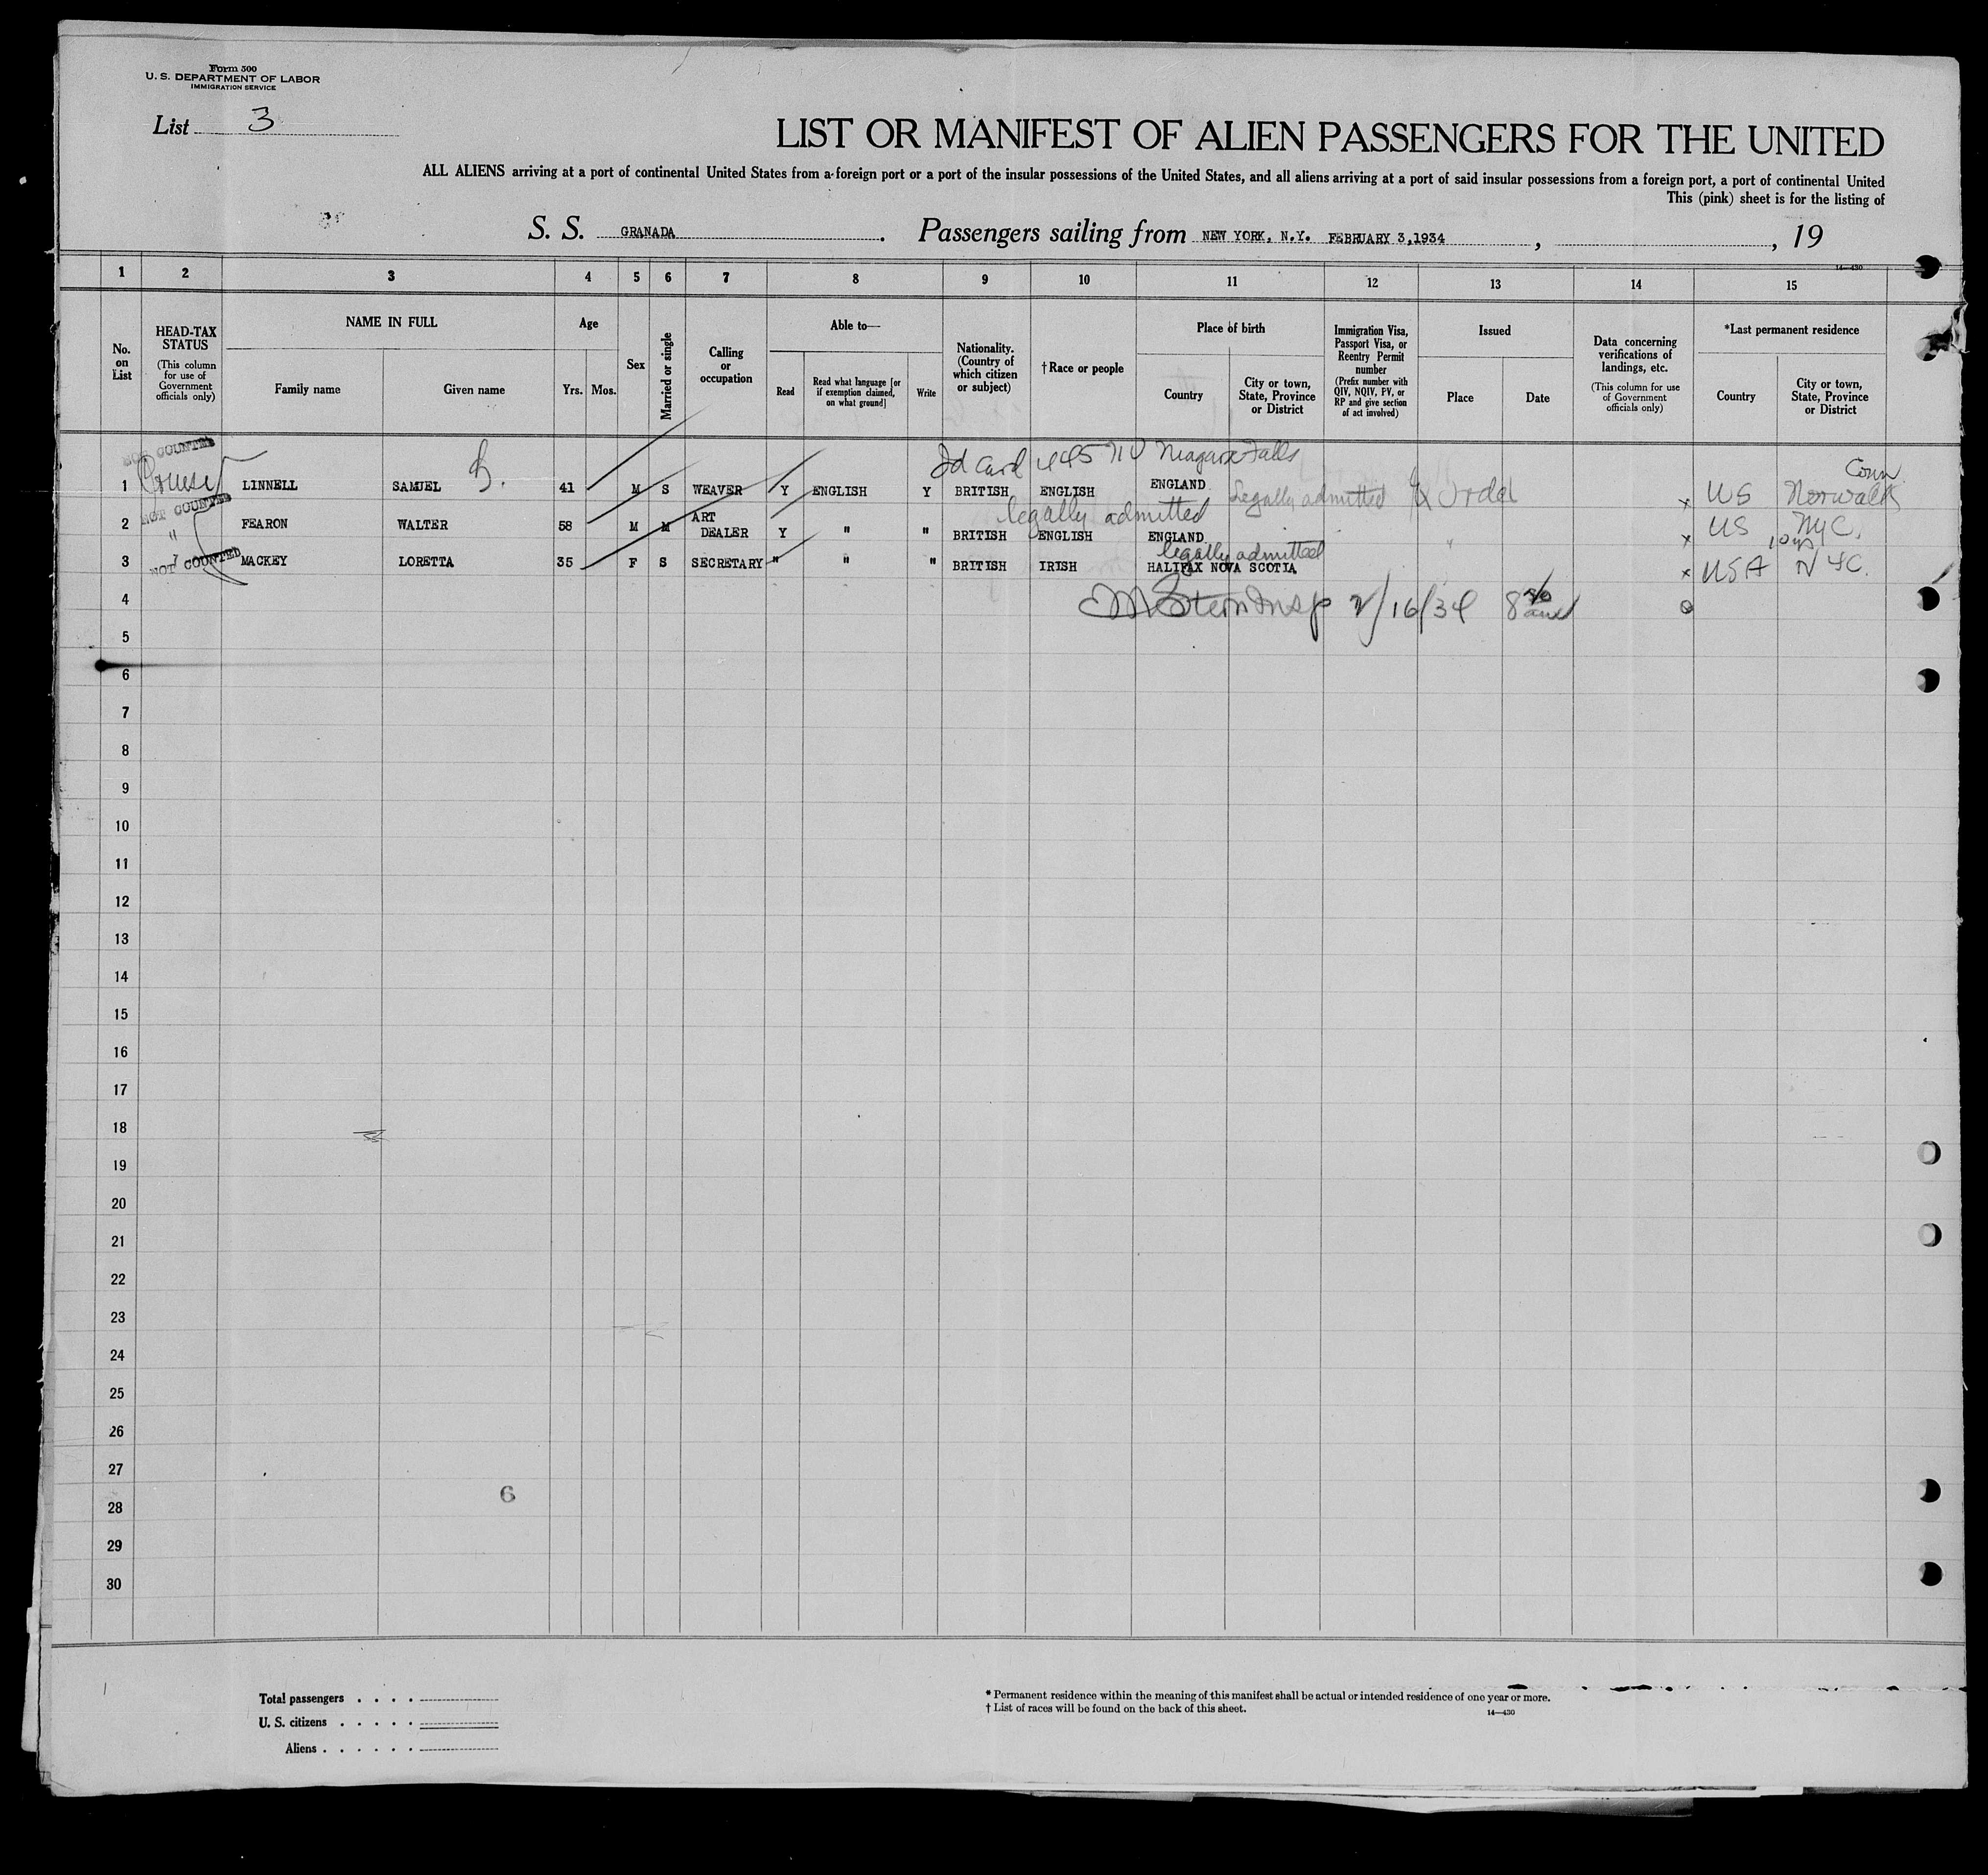 Form 500
U. S. DEPARTMENT OF LABOR
IMMIGRATION SERVICE
List 3
LIST OR MANIFEST OF ALIEN PASSENGERS FOR THE UNITED
ALL ALIENS arriving at a port of continental United States from a foreign port or a port of the insular possessions of the United States, and all aliens arriving at a port of said insular possessions from a foreign port, a port of continental United
This (pink) sheet is for the listing of
S. S. GRANADA. Passengers sailing from NEW YORK, N.Y. FEBRUARY 3,1934 , , 19
14—430
1 2 3 4 5 6 7 8 9 10 11 12 13 14 15
No. on List
HEAD-TAX STATUS
(This column for use of Government officials only)
NAME IN FULL
Family name
Given name
Age
Yrs. Mos.
Sex
Married or single
Calling or occupation
Able to—
Read
Read what language [or if exemption claimed, on what ground]
Write
Nationality. (Country of which citizen or subject)
†Race or people
Place of birth
Country
City or town, State, Province or District
Immigration Visa, Passport Visa, or Reentry Permit number
(Prefix number with QIV, NQIV, PV, or RP and give section of act involved)
Issued
Place
Date
Data concerning verifications of landings, etc.
(This column for use of Government officials only)
*Last permanent residence
Country
City or town, State, Province or District
NOT COUNTED
Id Card 445711 Niagara Falls
Conn
1 Cruise LINNELL SAMUEL B. 41 M S WEAVER Y ENGLISH Y BRITISH ENGLISH ENGLAND Legally admitted x US Norwalk
NOT COUNTED
legally admitted
2 " FEARON WALTER 58 M M ART DEALER Y " " BRITISH ENGLISH ENGLAND " x US NYC.
10 yrs
legally admitted
3 NOT COUNTED MACKEY LORETTA 35 F S SECRETARY " " " BRITISH IRISH HALIFAX NOVA SCOTIA x USA NYC.
4 Stern Insp 2/16/34 8
5
6
7
8
9
10
11
12
13
14
15
16
17
18
19
20
21
22
23
24
25
26
27
28
6
29
30
Total passengers . . . .
U. S. citizens . . . . .
Aliens . . . . . .
* Permanent residence within the meaning of this manifest shall be actual or intended residence of one year or more.
† List of races will be found on the back of this sheet.
14—430